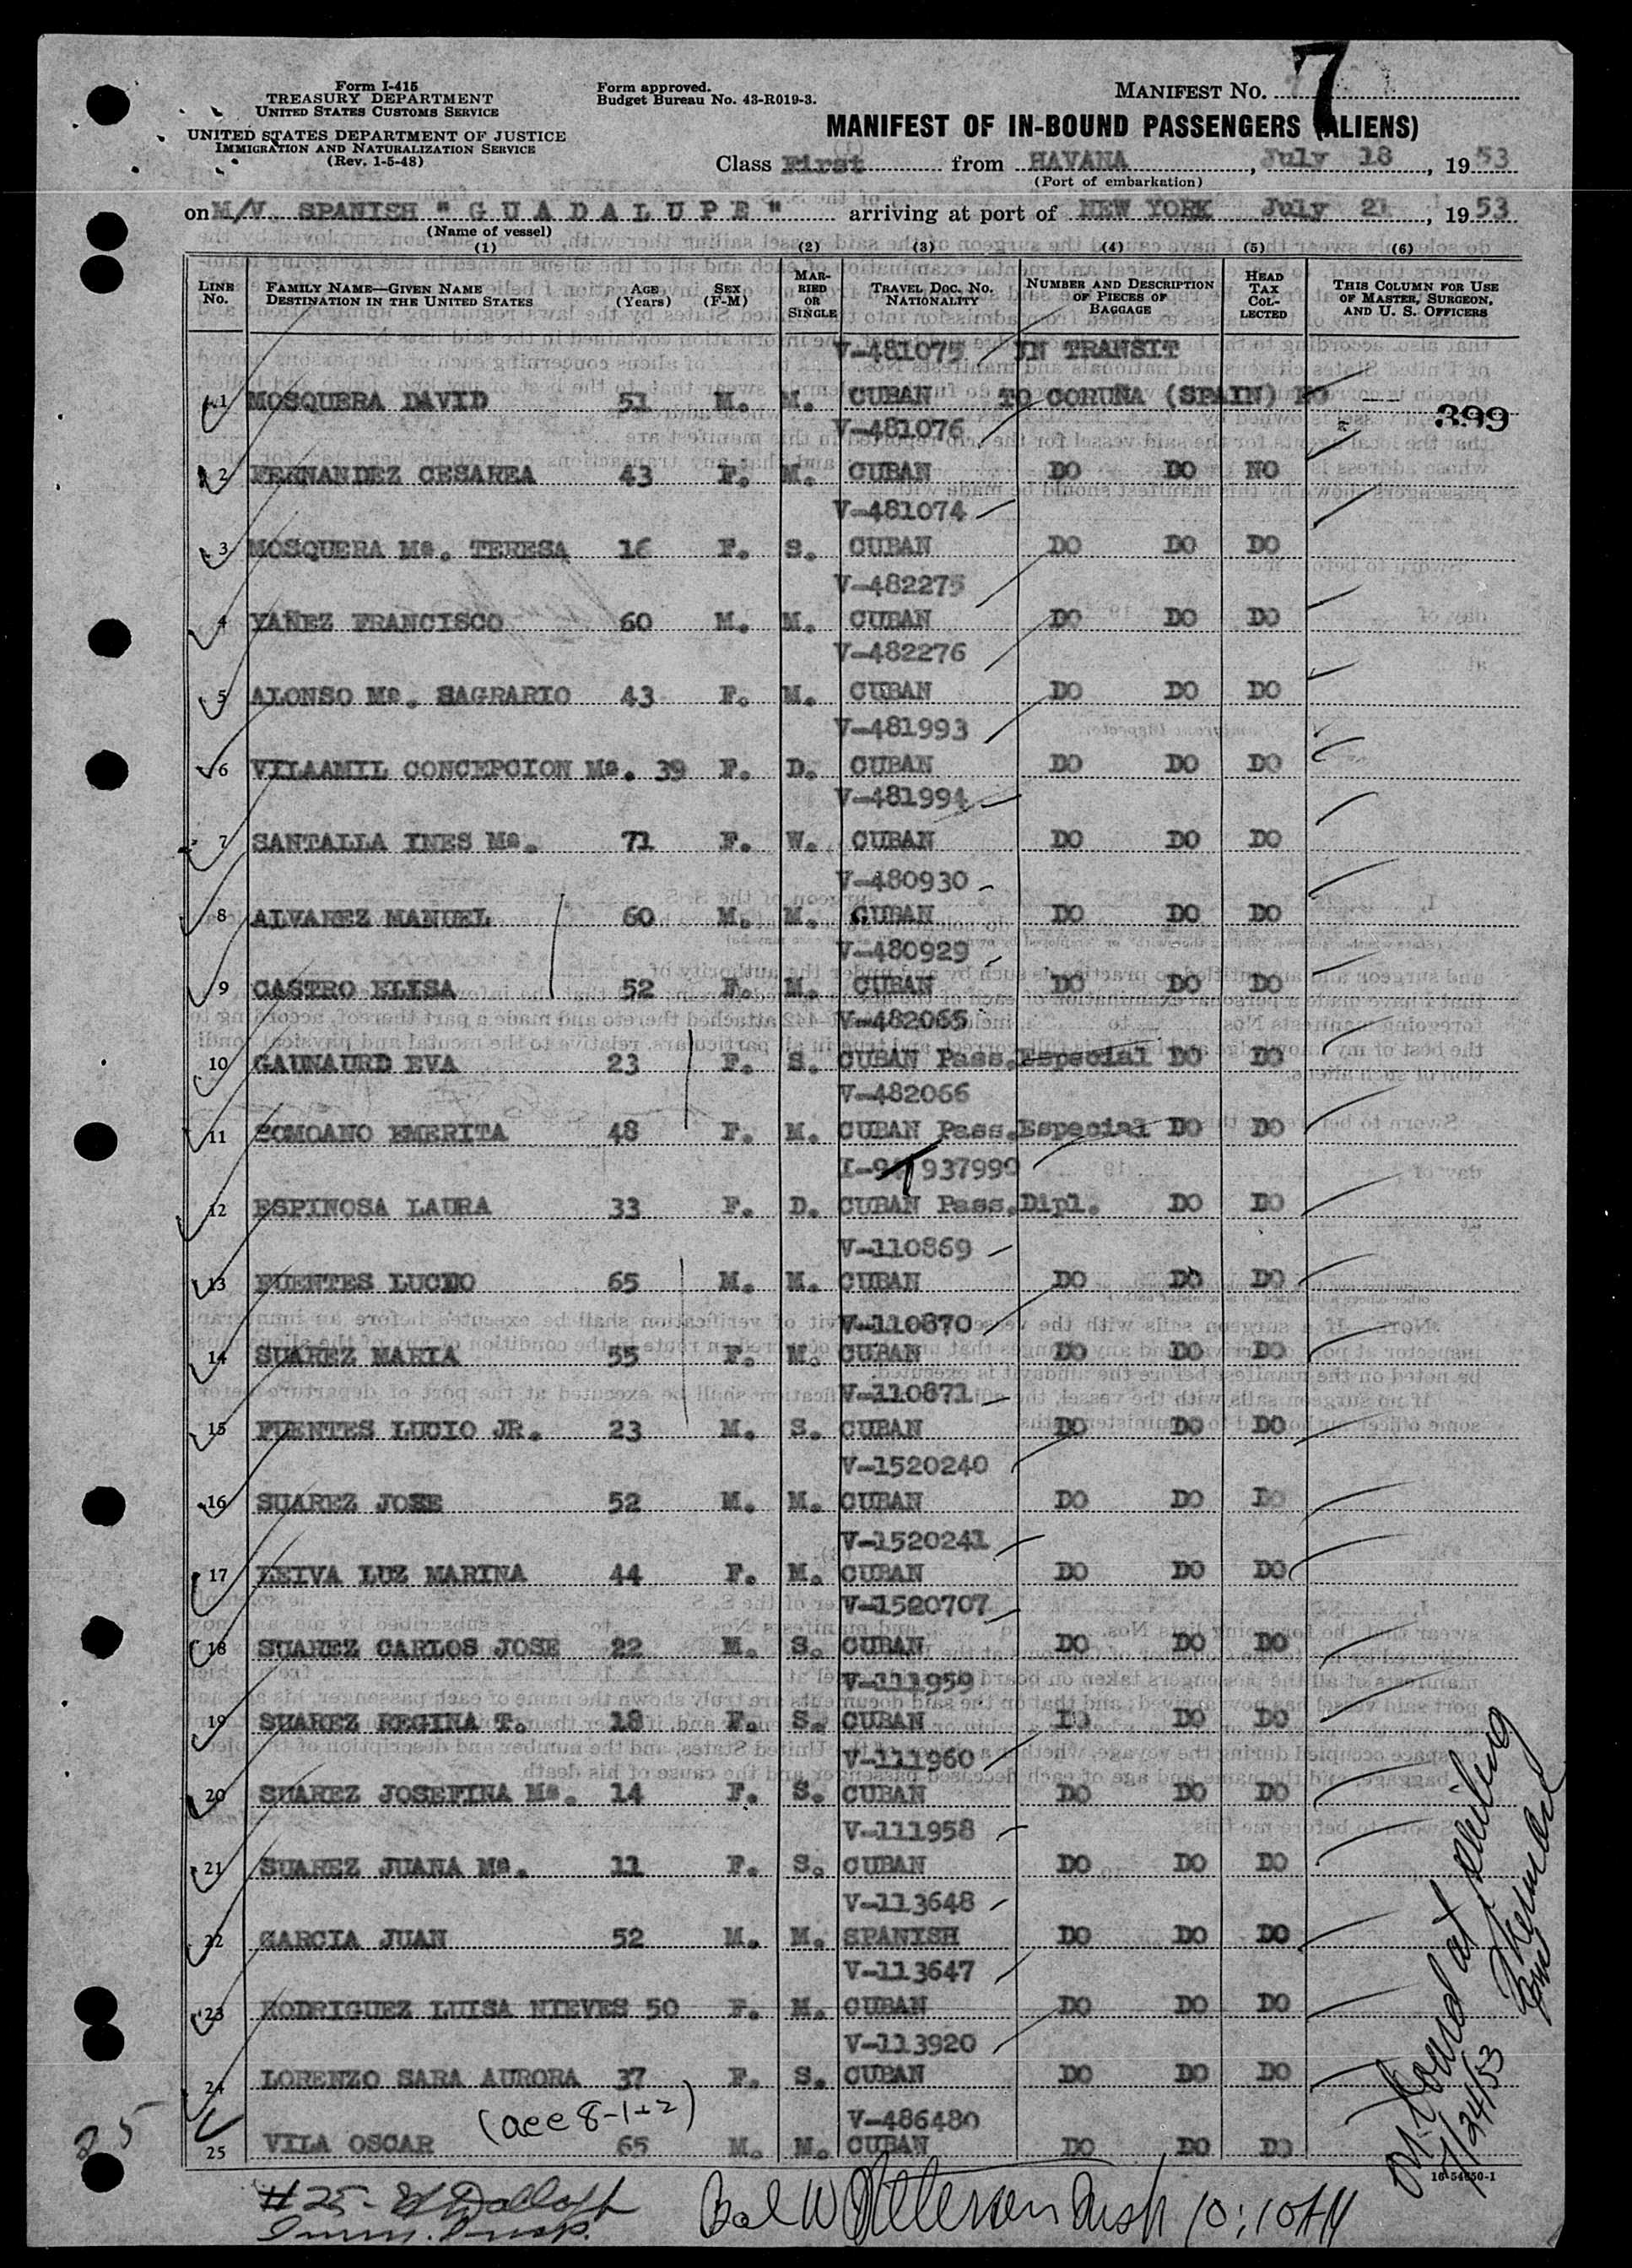 Form I-415
TREASURY DEPARTMENT
UNITED STATES CUSTOMS SERVICE
UNITED STATES DEPARTMENT OF JUSTICE
IMMIGRATION AND NATURALIZATION SERVICE
(Rev. 1-5-48)
Form approved.
Budget Bureau No. 43-R019-3.
MANIFEST NO. 7
MANIFEST OF IN-BOUND PASSENGERS (ALIENS)
Class First from HAVANA, July 18, 1953
(Port of embarkation)
on M/V. SPANISH "GUADALUPE" arriving at port of NEW YORK July 21, 1953
(Name of vessel)
(1) (2) (3) (4) (5) (6)
LINE No. FAMILY NAME—GIVEN NAME DESTINATION IN THE UNITED STATES AGE (Years) SEX (F-M) MARRIED OR SINGLE TRAVEL DOC. NO. NATIONALITY NUMBER AND DESCRIPTION OF PIECES OF BAGGAGE HEAD TAX COLLECTED THIS COLUMN FOR USE OF MASTER, SURGEON, AND U. S. OFFICERS
V-481075 IN TRANSIT
1 MOSQUERA DAVID 51 M. M. CUBAN TO CORUÑA (SPAIN) NO
399
V-481076
2 FERNANDEZ CESAREA 43 F. M. CUBAN DO DO NO
V-481074
3 MOSQUERA Mª. TERESA 16 F. S. CUBAN DO DO DO
V-482275
4 YAÑEZ FRANCISCO 60 M. M. CUBAN DO DO DO
V-482276
5 ALONSO Mª. SAGRARIO 43 F. M. CUBAN DO DO DO
V-481993
6 VILAAMIL CONCEPCION Mª. 39 F. D. CUBAN DO DO DO
V-481994
7 SANTALLA INES Mª. 71 F. W. CUBAN DO DO DO
V-480930
8 ALVAREZ MANUEL 60 M. M. CUBAN DO DO DO
V-480929
9 CASTRO ELISA 52 F. M. CUBAN DO DO DO
V-482065
10 GAUNAURD EVA 23 F. S. CUBAN Pass. Especial DO DO
V-482066
11 POMOANO EMERITA 48 F. M. CUBAN Pass. Especial DO DO
937999
12 ESPINOSA LAURA 33 F. D. CUBAN Pass. Dipl. DO DO
V-110869
13 FUENTES LUCIO 65 M. M. CUBAN DO DO DO
V-110870
14 SUAREZ MARIA 55 F. M. CUBAN DO DO DO
V-110871
15 FUENTES LUCIO JR. 23 M. S. CUBAN DO DO DO
V-1520240
16 SUAREZ JOSE 52 M. M. CUBAN DO DO DO
V-1520241
17 LEIVA LUZ MARINA 44 F. M. CUBAN DO DO DO
V-1520707
18 SUAREZ CARLOS JOSE 22 M. S. CUBAN DO DO DO
V-111959
19 SUAREZ REGINA T. 18 F. S. CUBAN DO DO DO
V-111960
20 SUAREZ JOSEFINA Mª. 14 F. S. CUBAN DO DO DO
V-111958
21 SUAREZ JUANA Mª. 11 F. S. CUBAN DO DO DO
V-113648
22 GARCIA JUAN 52 M. M. SPANISH DO DO DO
V-113647
23 RODRIGUEZ LUISA NIEVES 50 F. M. CUBAN DO DO DO
V-113920
24 LORENZO SARA AURORA 37 F. S. CUBAN DO DO DO
(see 8-1+2)
V-486480
25 VILA OSCAR 65 M. M. CUBAN DO DO DO
25
16-54650-1
On board at sailing
7/24/53
#25-
Immr. Insp.
Peterson Insp 10:10 AM